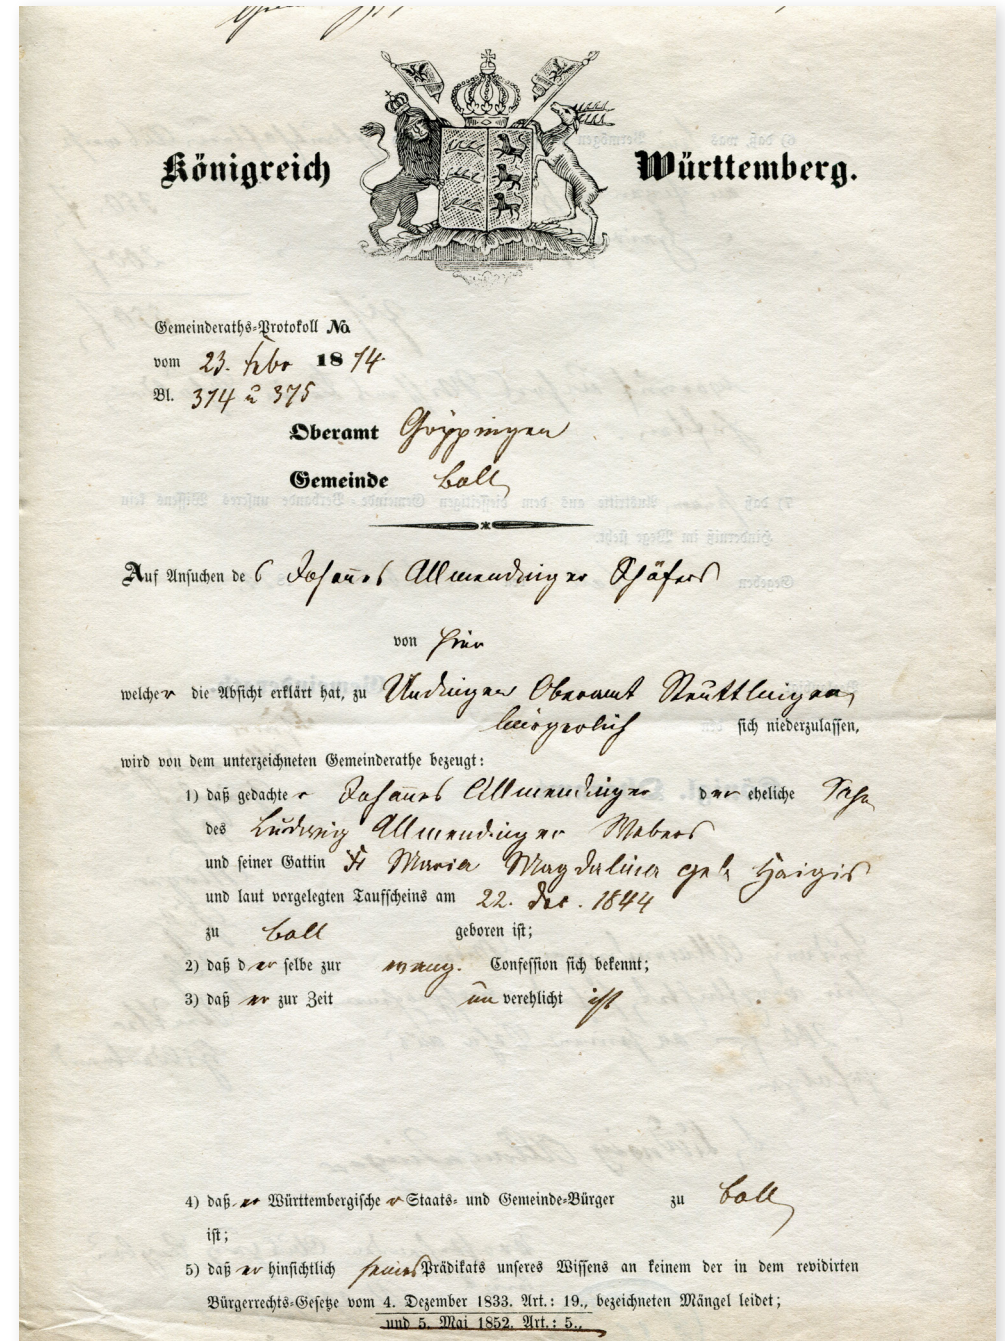 Königreich Württemberg.
Gemeinderaths-Protokoll No.
vom 23. Febr 1874
Bl. 374 u 375
Oberamt Göppingen
Gemeinde Boll
Auf Ansuchen des Johannes Allmendinger Schäfers
von hier
welcher die Absicht erklärt hat, zu Undingen Oberamt Reuttlingen,
bürgerlich sich niederzulassen,
wird von dem unterzeichneten Gemeinderathe bezeugt:
1) daß gedachter Johannes Allmendinger der eheliche Sohn
des Ludwig Allmendinger Webers
und seiner Gattin Maria Magdalena geb Haigis
und laut vorgelegten Taufscheins am 22. Dec. 1844
zu Boll geboren ist;
2) daß derselbe zur evang. Confession sich bekennt;
3) daß er zur Zeit unverehlicht ist
4) daß er Württembergischer Staats- und Gemeinde-Bürger zu Boll
ist;
5) daß er hinsichtlich seines Prädikats unseres Wissens an keinem der in dem revidirten
Bürgerrechts-Gesetze vom 4. Dezember 1833. Art.: 19., bezeichneten Mängel leidet;
und 5. Mai 1852. Art.: 5.,